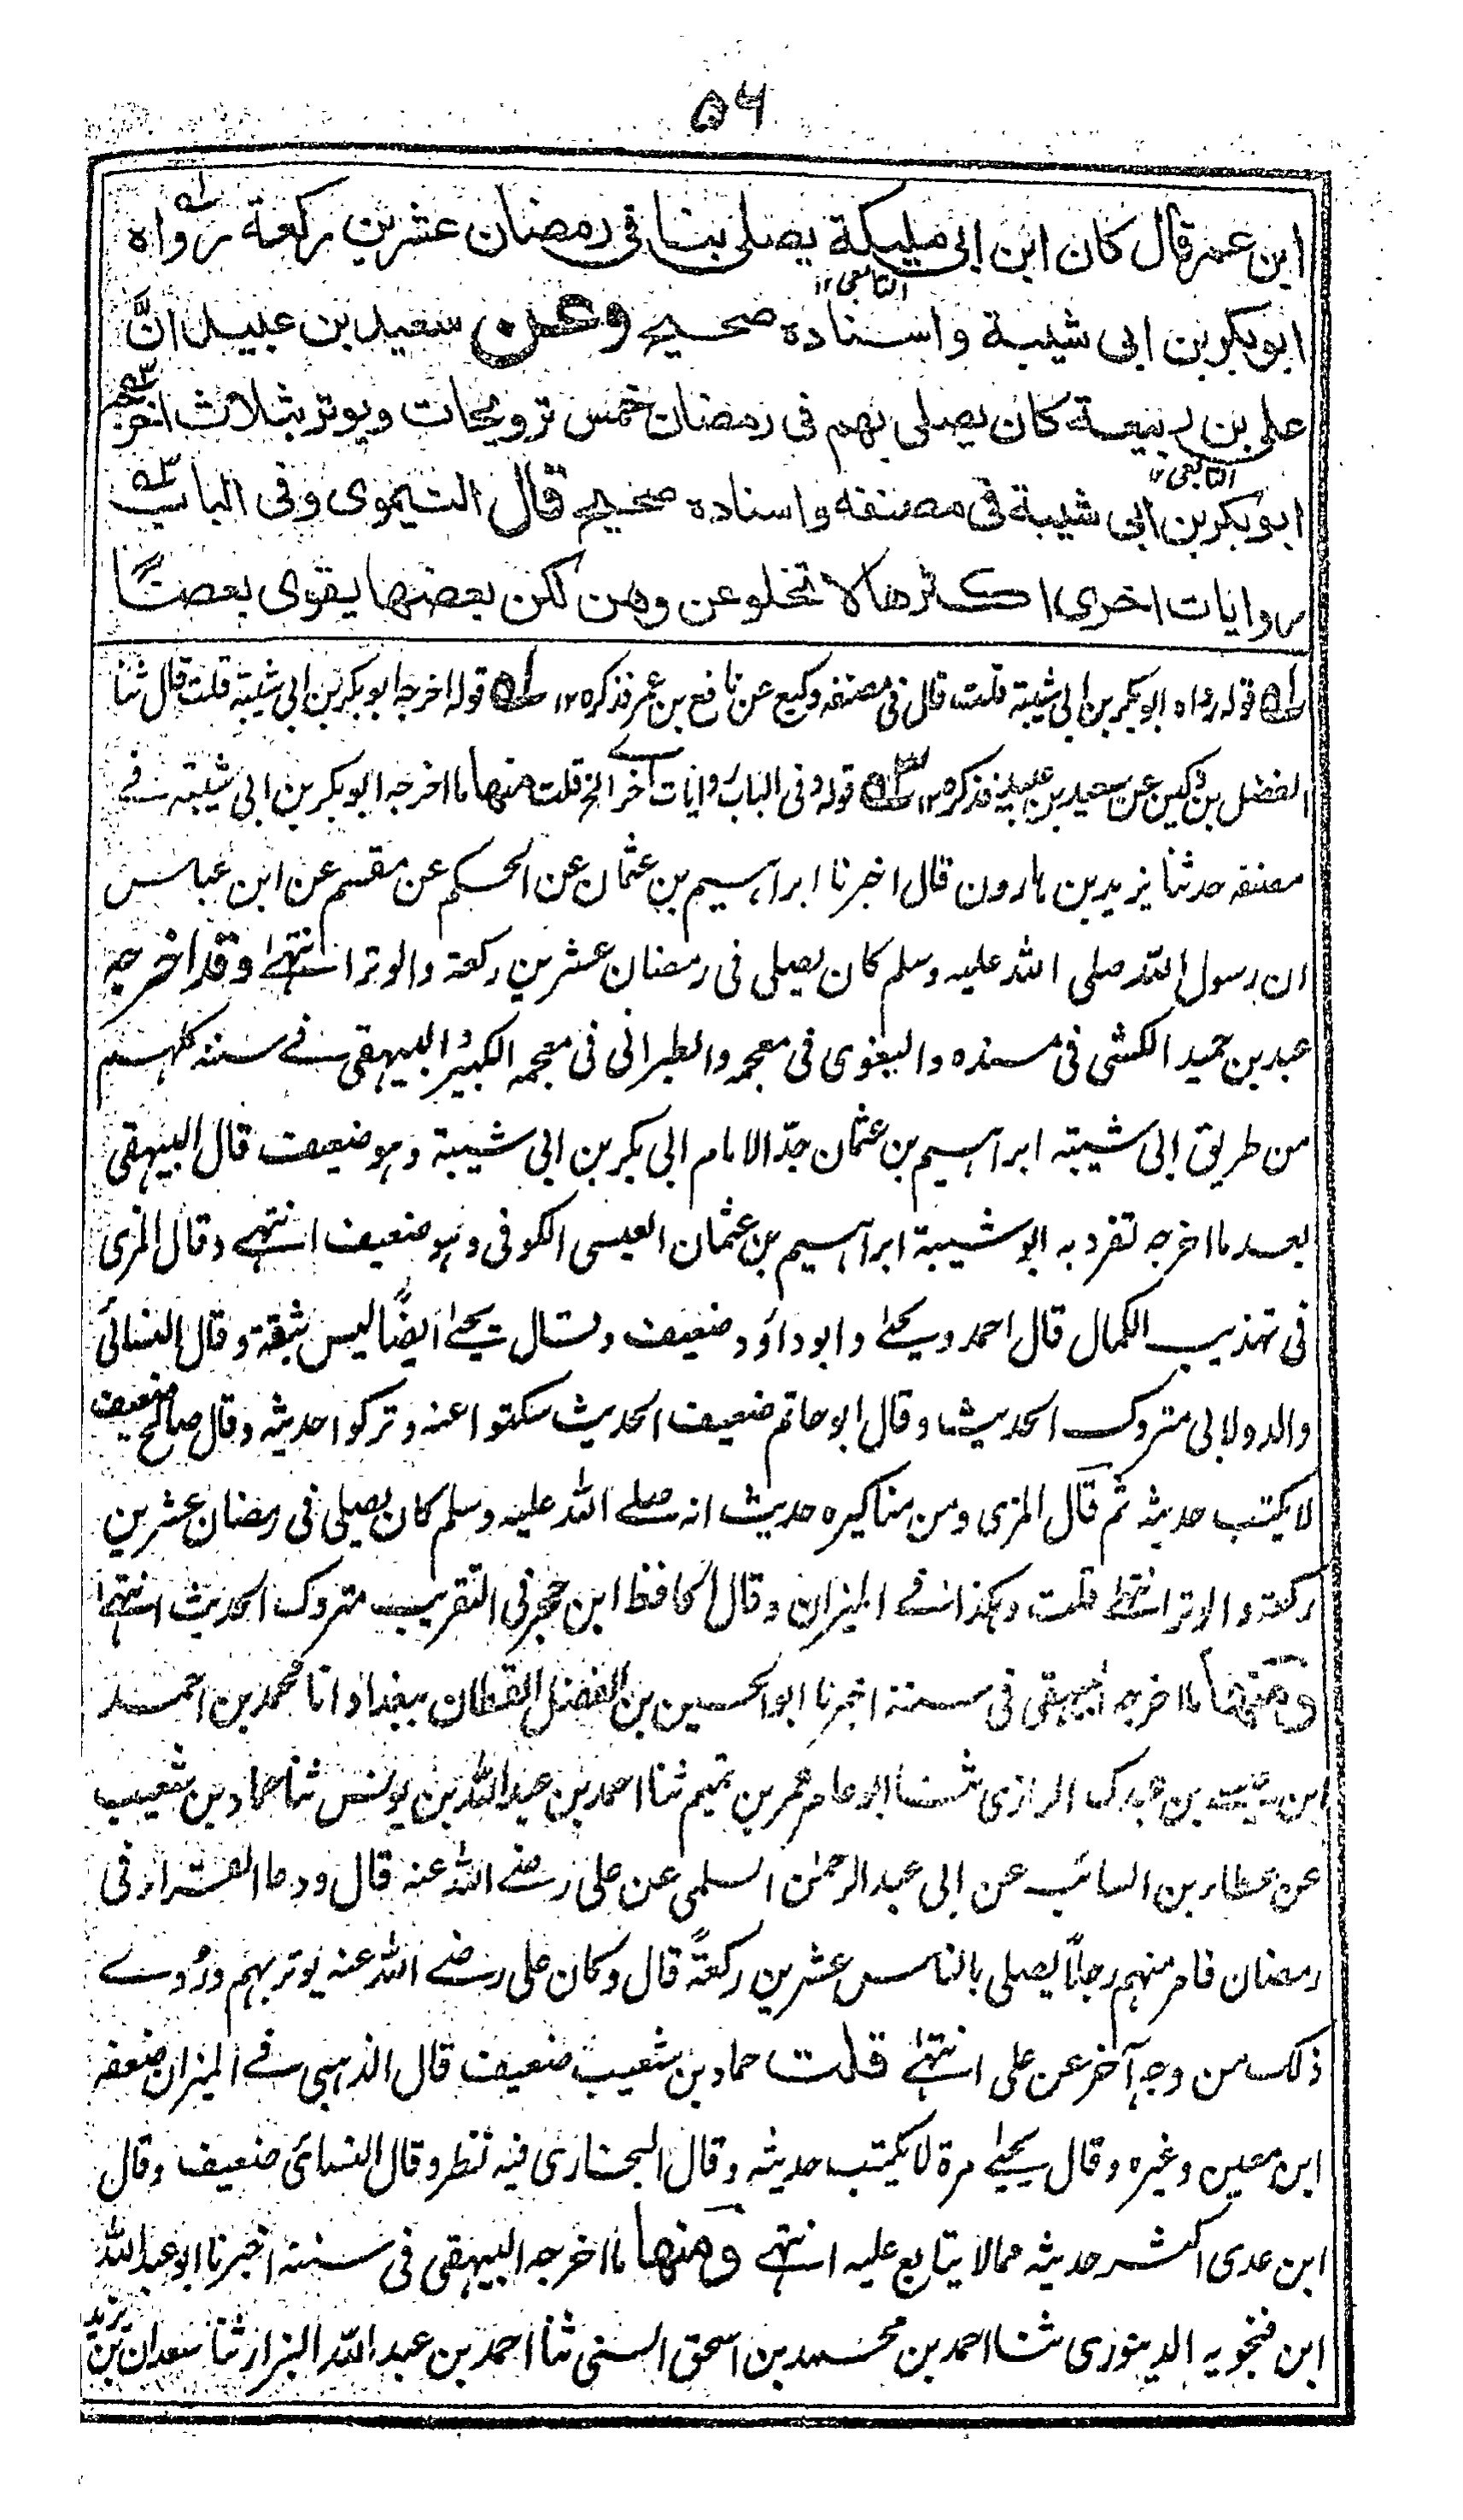 ۵۶
ابن عمر قال كان ابن ابى مليكة يصلى بنا فى رمضان عشرين ركعة رواه ؎۱
التابعى ۱۲
ابو بكر بن ابى شيبة واسناده صحيح وعن سعيد بن عبيد انَّ
على بن ربيعة كان يصلى بهم فى رمضان خمس ترويحات ويوتر بثلاث اخرجه ؎۲
التابعى ۱۲
ابو بكر بن ابى شيبة فى مصنفه واسناده صحيح قال النيموى وفى الباب ؎۳
روايات اخرى اكثرها لا تخلو عن وهن لكن بعضها يقوى بعضًا
؎۱ قوله رواه ابو بكر بن ابى شيبة قلت قال فى مصنفه وكيع عن نافع بن عمر فذكره ۱۲ ؎۲ قوله اخرجه ابو بكر بن ابى شيبة قلت قال ثنا
الفضل بن دكين عن سعيد بن عبيد فذكره ۱۲ ؎۳ قوله وفى الباب روايات اخرے الخ قلت منها ما اخرجه ابو بكر بن ابى شيبة فے
مصنفه حدثنا يزيد بن هارون قال اخبرنا ابراهيم بن عثمان عن الحكم عن مقسم عن ابن عباس
ان رسول الله صلى الله عليه وسلم كان يصلى فى رمضان عشرين ركعة والوتر انتهٰے وقد اخرجه
عبد بن حميد الكشى فى مسنده والبغوى فى معجمه والطبرانى فى معجمه الكبير والبيهقى فے سننه كلهم
من طريق ابى شيبة ابراهيم بن عثمان جدّ الامام ابى بكر بن ابى شيبة وهو ضعيف قال البيهقى
بعد ما اخرجه تفرد به ابو شيبة ابراهيم بن عثمان العبسى الكوفى وهو ضعيف انتهے وقال المزى
فى تهذيب الكمال قال احمد ويحيٰے وابو داؤد ضعيف وقال يحيٰے ايضًا ليس بثقة وقال النسائى
والدولابى متروك الحديث وقال ابو حاتم ضعيف الحديث سكتوا عنه وتركوا حديثه وقال صالح ضعيف
لا يكتب حديثه ثم قال المزى ومن مناكيره حديث انه صلے الله عليه وسلم كان يصلى فى رمضان عشرين
ركعة والوتر انتهٰے قلت وهكذا فے الميزان وقال الحافظ ابن حجر فى التقريب متروك الحديث انتهٰے
ومنها ما اخرجه البيهقى فى سننه اخبرنا ابو الحسين بن الفضل القطان ببغداد انا محمد بن احمد
ابن عيسى بن عبدك الرازى ثنا ابو عامر عمرو بن تميم ثنا احمد بن عبد الله بن يونس ثنا حماد بن شعيب
عن عطاء بن السائب عن ابى عبد الرحمٰن السلمى عن على رضے الله عنه قال ودعا القراء فى
رمضان فامر منهم رجلاً يصلى بالناس عشرين ركعةً قال وكان على رضے الله عنه يوتر بهم وروے
ذلك من وجه آخر عن على انتهٰے قلت حماد بن شعيب ضعيف قال الذهبى فے الميزان ضعفه
ابن معين وغيره وقال يحيٰے مرة لا يكتب حديثه وقال البخارى فيه نظر وقال النسائى ضعيف وقال
ابن عدى اكثر حديثه مما لا يتابع عليه انتهے ومنها ما اخرجه البيهقى فى سننه اخبرنا ابو عبد الله
ابن فنجويه الدينورى ثنا احمد بن محمد بن اسحق السنى ثنا احمد بن عبد الله البزاز ثنا سعدان بن يزيد